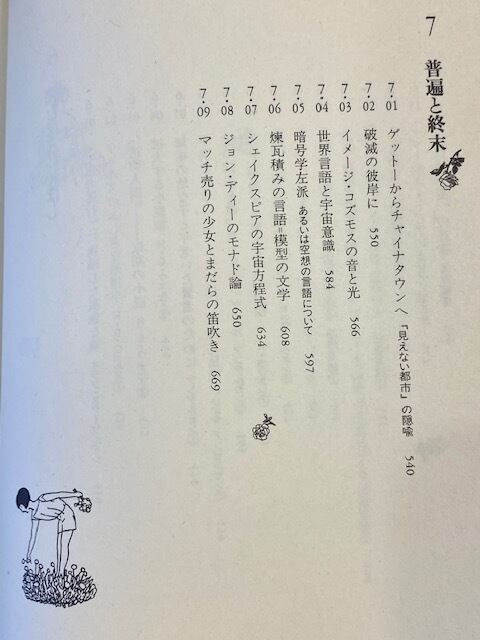 7 普遍と終末
7・01 ゲットーからチャイナタウンへ 『見えない都市』の隠喩 540
7・02 破滅の彼岸に 550
7・03 イメージ・コズモスの音と光 566
7・04 世界言語と宇宙意識 584
7・05 暗号学左派 あるいは空想の言語について 597
7・06 煉瓦積みの言語=模型の文学 608
7・07 シェイクスピアの宇宙方程式 634
7・08 ジョン・ディーのモナド論 650
7・09 マッチ売りの少女とまだらの笛吹き 669